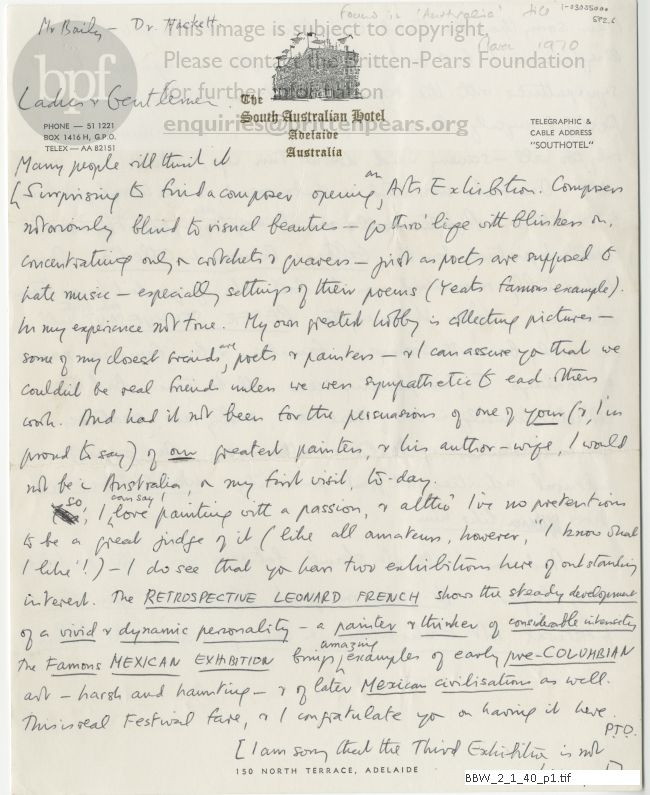 Found in 'Australia' file
1-03035000
SP2.6
Mr Baily - Dr. Hackett
March 1970
This image is subject to copyright.
Please contact the Britten-Pears Foundation
for further information
enquiries@brittenpears.org
bpf
Ladies & Gentlemen.
The
South Australian Hotel
Adelaide
Australia
PHONE — 51 1221
BOX 1416 H, G.P.O.
TELEX — AA 82151
TELEGRAPHIC &
CABLE ADDRESS
"SOUTHOTEL"
Many people will think it
[Surprising to find a composer opening an Arts Exhibition. Composers
notoriously blind to visual beauties — go thro' life with blinkers on,
concentrating only on crotchets & quavers — just as poets are supposed to
hate music — especially settings of their poems (Yeats famous example).
In my experience not true. My own greatest hobby is collecting pictures —
some of my closest friends are poets & painters — & I can assure you that we
couldn't be real friends unless we were sympathetic to each others
work. And had it not been for the persuasions of one of your (&, I'm
proud to say) of our greatest painters, & his author-wife, I would
not be in Australia, on my first visit, to-day.
So, I can say! love painting with a passion, & altho' I've no pretentions
to be a great judge of it (like all amateurs, however, "I know what
I like"!) — I do see that you have two exhibitions here of outstanding
interest. The RETROSPECTIVE LEONARD FRENCH shows the steady development
of a vivid & dynamic personality — a painter & thinker of considerable intensity
The Famous MEXICAN EXHIBITION brings amazing examples of early pre-COLUMBIAN
art — harsh and haunting — & of later Mexican civilisations as well.
This is real Festival fare, & I congratulate you on having it here.
P.T.O.
[I am sorry that the Third Exhibition is not
150 NORTH TERRACE, ADELAIDE
BBW_2_1_40_p1.tif